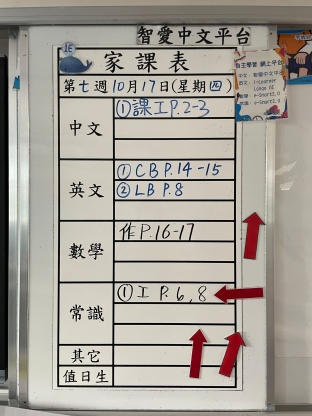 智愛中文平台
1E
家課表
第七週10月17日(星期四)
中文
①課工P.2-3
英文
①CB P.14-15
②LB P.8
數學
作P.16-17
常識
①工 P.6,8
其它
值日生
自主學習 網上平台
中文：智愛中文平台
英文：i-Learner